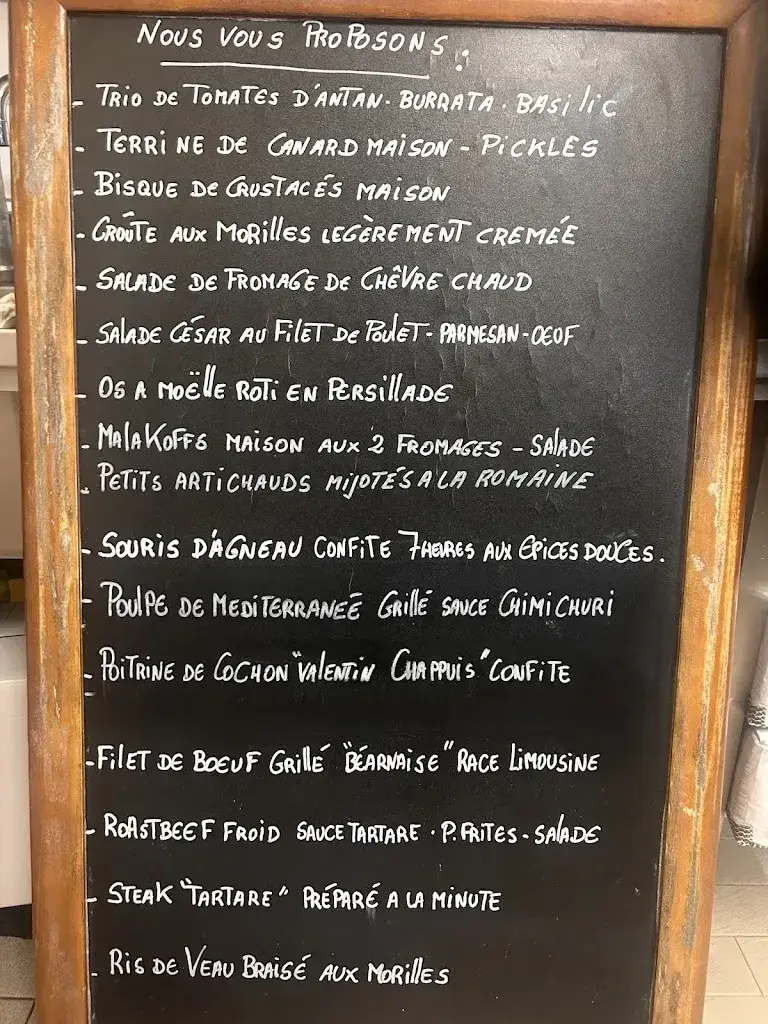 NOUS VOUS PROPOSONS :
- TRIO DE TOMATES D'ANTAN - BURRATA - BASILIC
- TERRINE DE CANARD MAISON - PICKLES
- BISQUE DE CRUSTACÉS MAISON
- CROÛTE AUX MORILLES LEGÈREMENT CREMÉE
- SALADE DE FROMAGE DE CHÊVRE CHAUD
- SALADE CÉSAR AU FILET DE POULET - PARMESAN - OEUF
- OS A MOËLLE ROTI EN PERSILLADE
- MALAKOFFS MAISON AUX 2 FROMAGES - SALADE
- PETITS ARTICHAUDS MIJOTÉS A LA ROMAINE
- SOURIS D'AGNEAU CONFITE 7 HEURES AUX EPICES DOUCES.
- POULPE DE MEDITERRANEÉ GRILLÉ SAUCE CHIMICHURI
- POITRINE DE COCHON "VALENTIN CHAPPUIS" CONFITE
- FILET DE BOEUF GRILLÉ "BÉARNAISE" RACE LIMOUSINE
- ROASTBEEF FROID SAUCE TARTARE - P. FRITES - SALADE
- STEAK "TARTARE" PRÉPARÉ A LA MINUTE
- RIS DE VEAU BRAISÉ AUX MORILLES